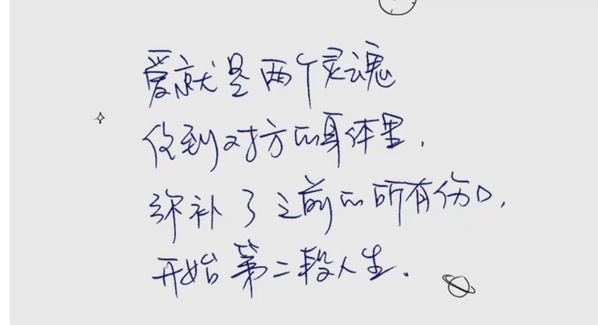 爱就是两个灵魂
住到对方的身体里，
弥补了之前的所有伤口，
开始第二段人生.